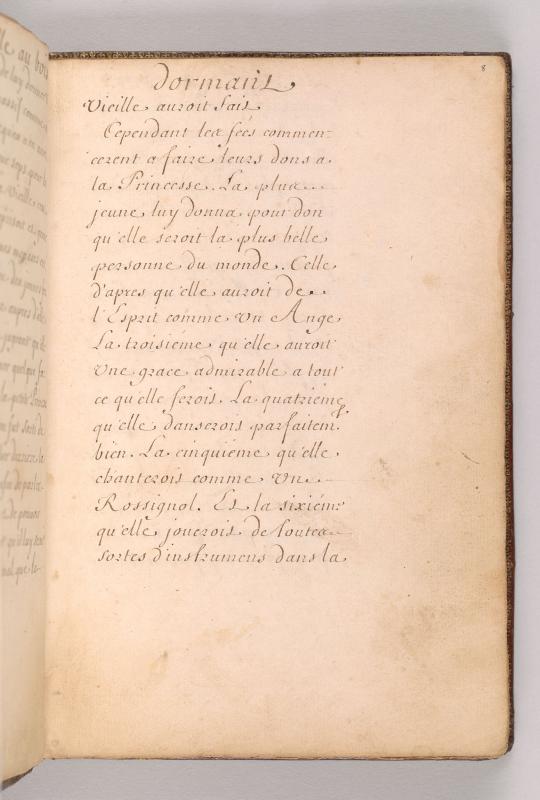 8
dormant
Vieille auroit fait
Cependant les fées commen=
cerent a faire leurs dons a
la Princesse. La plus
jeune luy donna pour don
qu'elle seroit la plus belle
personne du monde. Celle
d'apres qu'elle auroit de
l'Esprit comme un Ange
La troisiéme qu'elle auroit
Une grace admirable a tout
ce qu'elle ferois. La quatriéme
qu'elle danserois parfaitem.t
bien. La cinquiéme qu'elle
chanterois comme Un
Rossignol. Et la sixiéme
qu'elle joueroit de toutes
sortes d'instrumens dans la